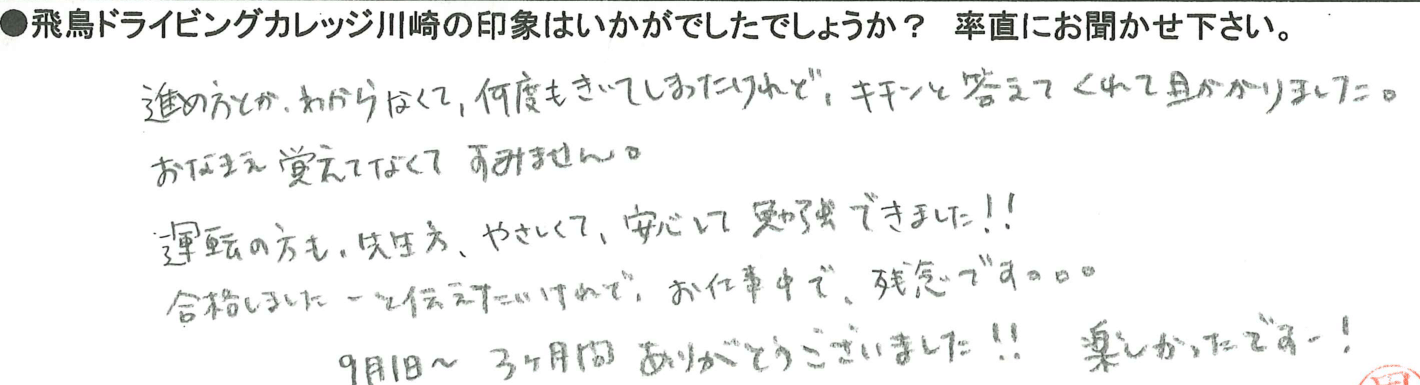 ●飛鳥ドライビングカレッジ川崎の印象はいかがでしたでしょうか？　率直にお聞かせ下さい。
進め方とか、わからなくて、何度もきいてしまったけれど、キチンと答えてくれて助かりました。
おなまえ覚えてなくてすみません。
運転の方も、先生方、やさしくて、安心して勉強できました!!
合格しましたーと伝えたいけれど、お仕事中で、残念です。。。
9月1日〜 3ヶ月間 ありがとうございました!! 楽しかったですー!